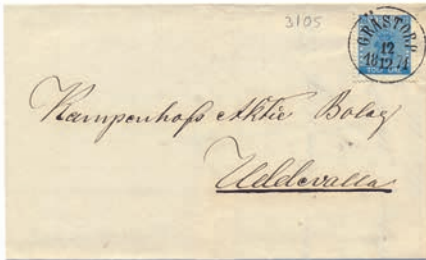 3105
GRÄSTORP
12
18 12 71
TOLF ÖRE
Kampenhofs Aktie Bolag
Uddevalla